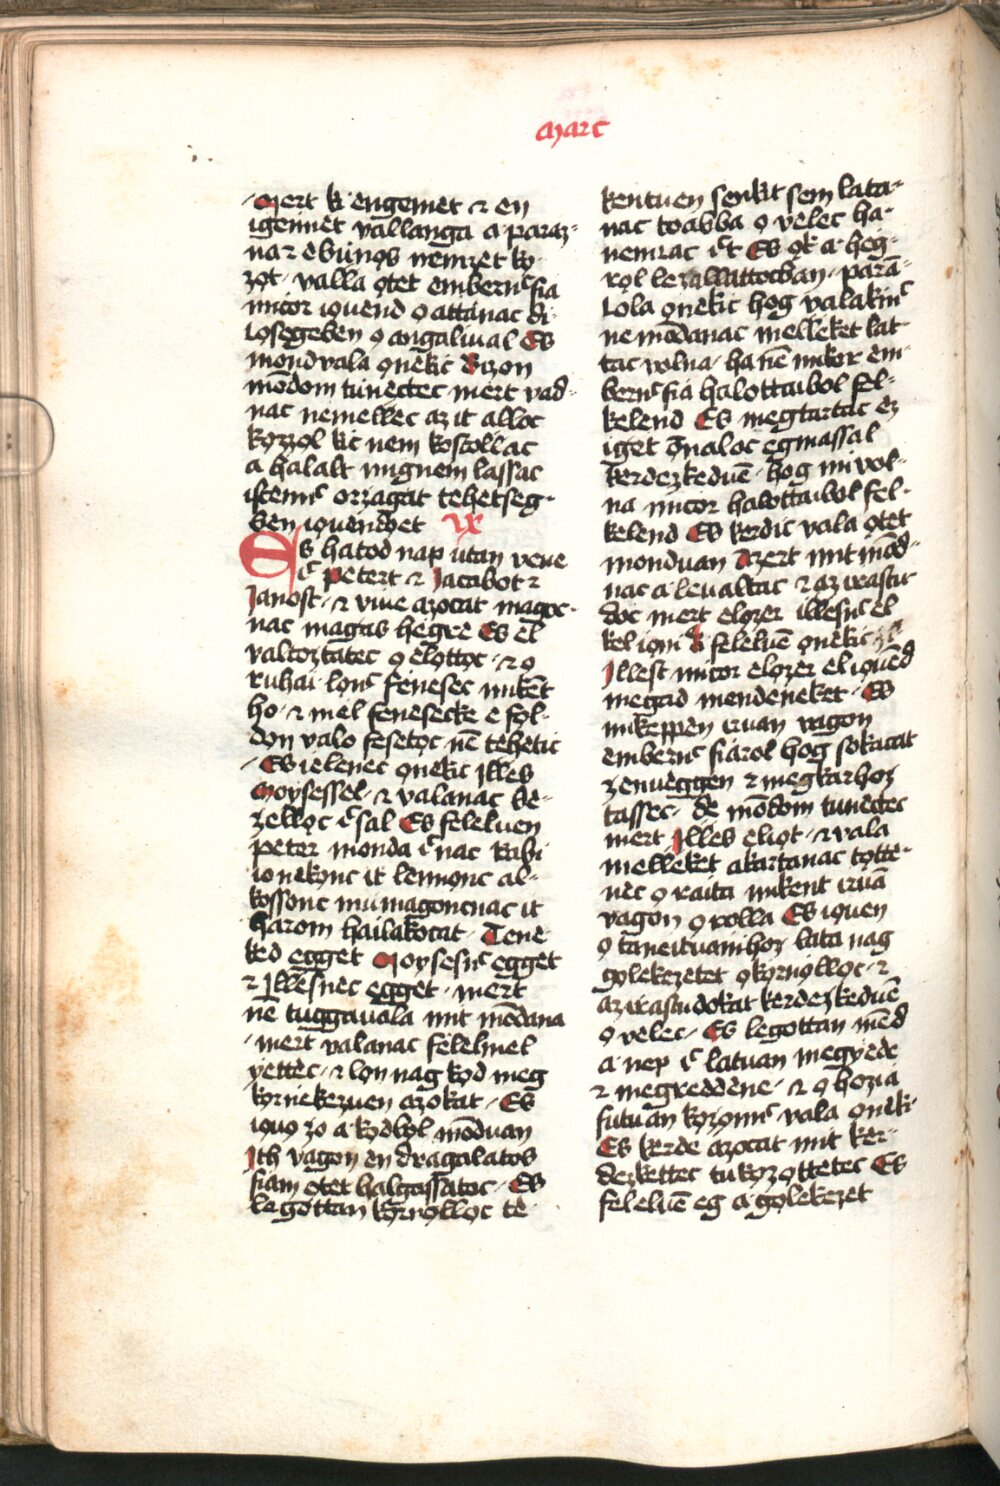 Marc
Mert ki engemet ⁊ en
igeimet vallanga a paraz-
naz ebűnǫs nemzet kǫ-
zǫt · valla ǫtet emberncfia
micor iǫuend ǫ attanac di-
iosegeben ǫ angaliual Es
mond vala ǫnekic Bizon
mōdom tunectec mert vad-
nac nemellec az it alloc
kǫzzǫl kic nem kostollac
a halalt mignem lassac
istennc orzagat tehetseg-
ben iǫuendǫet IX
Es hatod nap utan veue
ic Petert ⁊ Iacabot ⁊
Ianost · ⁊ viue azocat magoc-
nac magas hegre Es el
valtoztatec ǫ elǫttǫc · ⁊ ǫ
ruhai lonc feńesec mikēt
ho · ⁊ mel feńesecke e fǫl-
dǫn valo festǫc nē tehetic
Es ielenec ǫnekic Illes
Moysessel · ⁊ valanac be-
zellǫc icsal Es feleluen
peter monda icnac Rabi
io nekǫnc it lennǫnc al-
kossonc mu magoncnac it
harom hailakocat · Tene-
ked egget Moysesnc egget
⁊ Illesnec egget · mert
nē tuggavala mit mōdana
· mert valanac felelmel
yettec · ⁊ lǫn nag kǫd meg
kǫrńekezuen azokat · Es
iǫuǫ zo a kǫdbǫl mōduan
Ith vagon en dragalatos
fiam ǫtet halgassatoc · Es
legottan kǫrńǫllǫc te-
kentuen senkit sem lata-
nac toabba ǫ velec ha-
nemčac ict Es ǫk a heg-
rǫl lezallattocban · parā-
lola ǫnekic hog valakinc
ne mōdanac melleket lat-
tac volna · ha nē mikor em-
bernc fia halottaibol fel-
kelend Es megtartac ez
iget ōnaloc egmassal
kerdezkeduē · hog mi vol-
na micor halottaibol fel-
kelend Es kerdic vala ǫtet
monduan Azert mit mōd-
nac a leualtac ⁊ az irastu-
doc mert elǫzer illesnc el
kel iǫni Ki feleluē ǫnekic
Illest micor elǫzer el iǫuēd
megad mendeneket · Es
mikeppen iruan vagon
embernc fiarol hog sokacat
zenueggen ⁊ megkarhoz-
tassec · de mōdom tunectec
mert Illes eliǫt · ⁊ vala
melleket akartanac tǫtte-
nec ǫ raita mikent iruā
vagon ǫ rolla Es iǫuen
ǫ taneituanihoz lata nag
gǫlekezetet ǫkǫrńǫllǫc · ⁊
az irastudokat kerdezkeduē
ǫ velec · Es legottan mēd
a nep ic latuan megyede
⁊ megreddene · ⁊ ǫ hozia
futuan kǫzǫnnc vala ǫneki ·
Es kerde azocat mit ker-
dezkettec tu kǫzǫttetec Es
feleluē eg a gǫlekezet